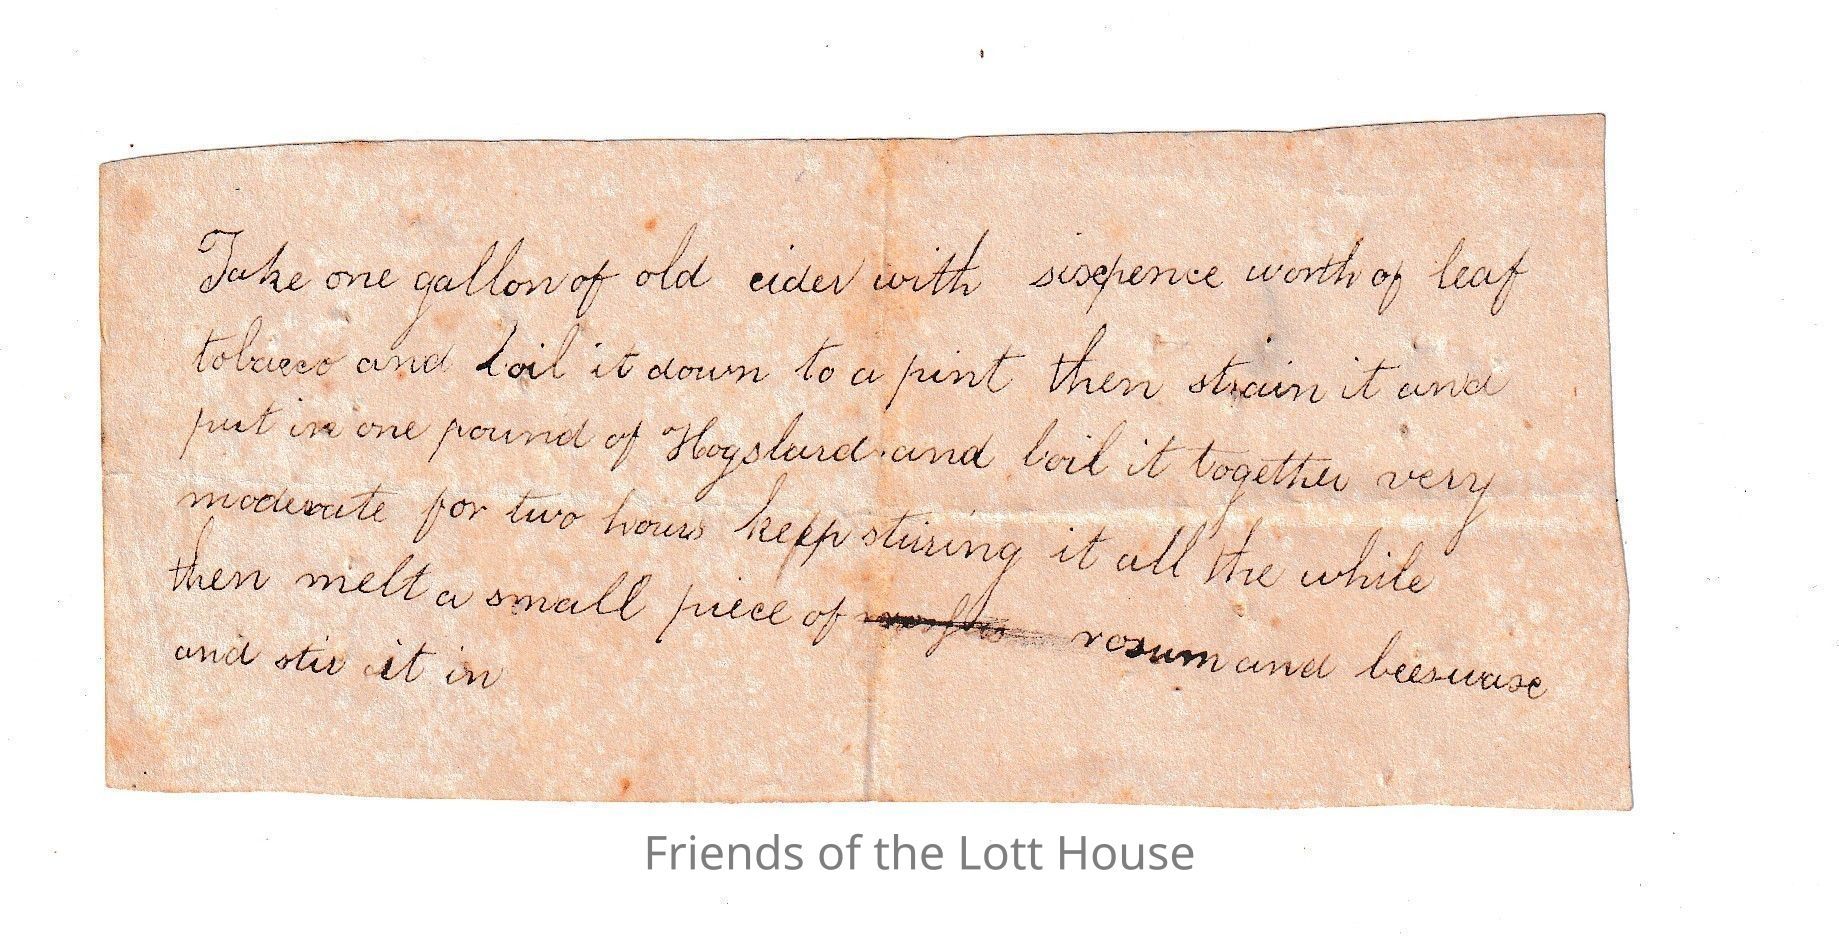 Take one gallon of old cider with sixpence worth of leaf
tobacco and boil it down to a pint then strain it and
put in one pound of Hogslard and boil it together very
moderate for two hours keep stiring it all the while
then melt a small piece of rosum and beeswaxe
and stir it in
Friends of the Lott House